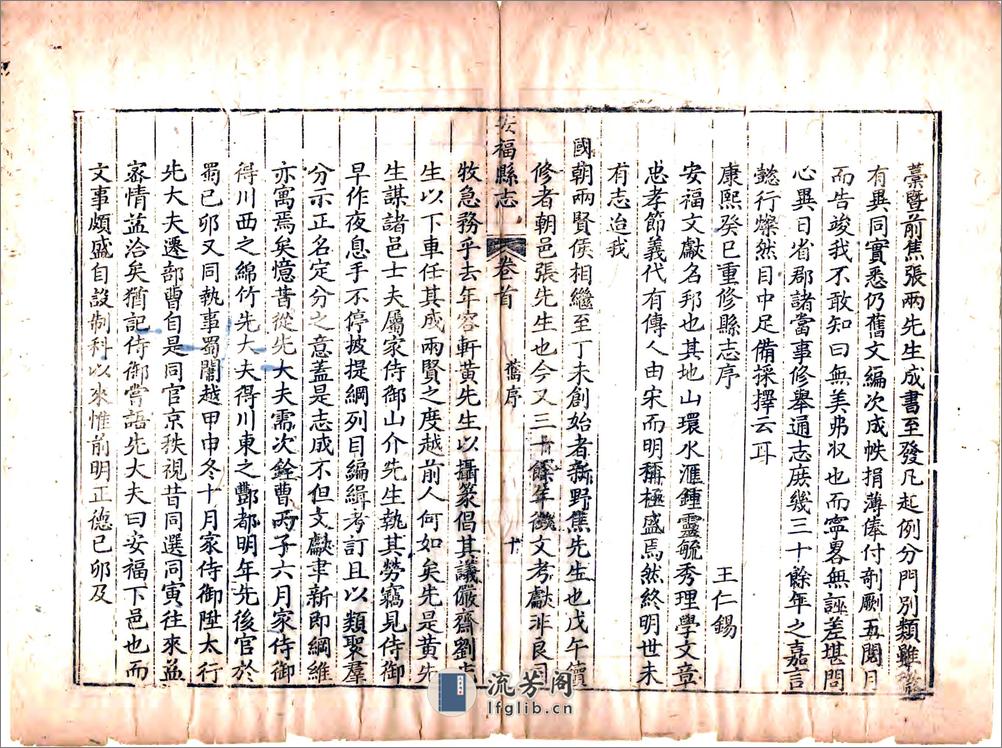 藁暨前焦張兩先生成書至發凡起例分門別類雖
有異同實悉仍舊文編次成帙捐薄俸付剞劂五閱月
而告竣我不敢知曰無美弗収也而寧畧無誣差堪問
心異日省郡諸當事修舉通志庶幾三十餘年之嘉言
懿行燦然目中足備採擇云耳
康熙癸巳重修縣志序
王仁錫
安福文獻名邦也其地山環水滙鍾靈毓秀理學文章
忠孝節義代有傳人由宋而明稱極盛焉然終明世未
有志迨我
國朝兩賢侯相繼至丁未創始者新野焦先生也戊午續
修者朝邑張先生也今又三十餘年徵文考獻非良司
安福縣志
卷首
舊序
十
牧急務乎去年容軒黃先生以攝篆倡其議嚴齋劉先
生以下車任其成兩賢之度越前人何如矣先是黃先
生謀諸邑士夫屬家侍御山介先生執其勞竊見侍御
早作夜息手不停披提綱列目編緝考訂且以類聚羣
分示正名定分之意蓋是志成不但文獻聿新即綱維
亦寓焉矣憶昔從先大夫需次銓曹丙子六月家侍御
得川西之綿竹先大夫得川東之酆都明年先後官於
蜀已夘又同執事蜀闈越甲申冬十月家侍御陞太行
先大夫遷部曹自是同官京秩視昔同選同寅往來益
密情益洽矣猶記侍御嘗語先大夫曰安福下邑也而
文事頗盛自設制科以來惟前明正德已夘及
流芳阁
lfglib.cn